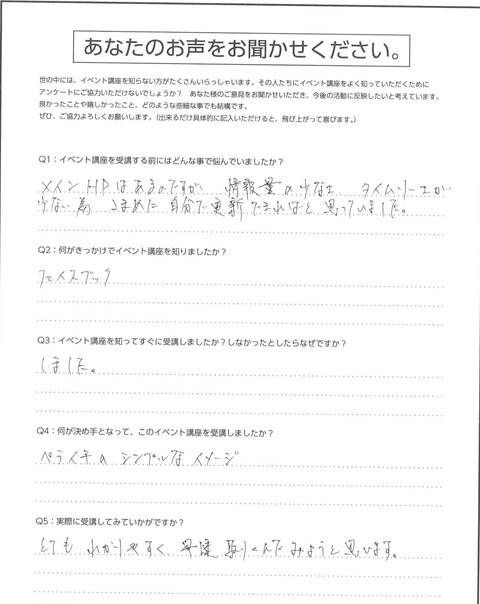 あなたのお声をお聞かせください。
世の中には、イベント講座を知らない方がたくさんいらっしゃいます。その人たちにイベント講座をよく知っていただくために
アンケートにご協力いただけないでしょうか？　あなた様のご意見をお聞かせいただき、今後の活動に反映したいと考えています。
良かったことや嬉しかったこと、どのような些細な事でも結構です。
ぜひ、ご協力よろしくお願いします。(出来るだけ具体的に記入いただけると、飛び上がって喜びます。)
Q1：イベント講座を受講する前にはどんな事で悩んでいましたか？
メインHPはあるのですが 情報量の少なさ、タイムリーさが
少ない為 こまめに自分で更新できればと思っていました。
Q2：何がきっかけでイベント講座を知りましたか？
フェイスブック
Q3：イベント講座を知ってすぐに受講しましたか？しなかったとしたらなぜですか？
しました。
Q4：何が決め手となって、このイベント講座を受講しましたか？
ペライチのシンプルなイメージ
Q5：実際に受講してみていかがですか？
とても わかりやすく 早速 取りくんでみようと思います。